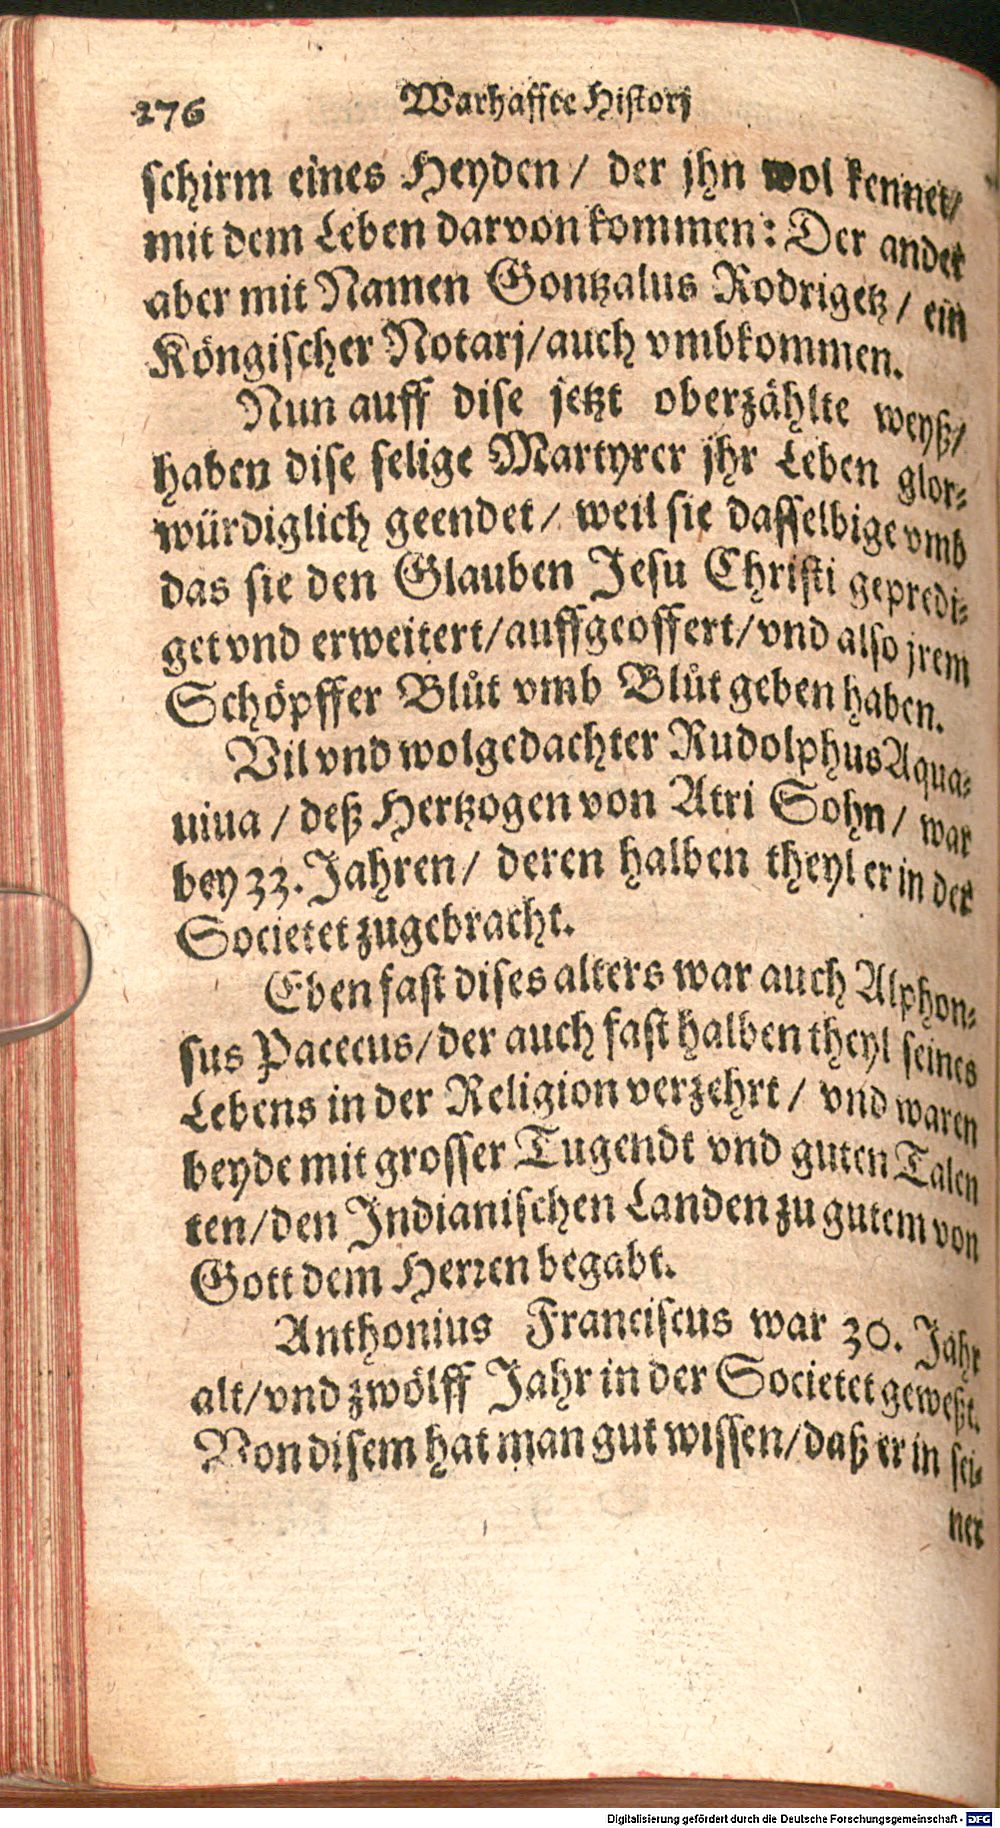 276 Warhaffte Historj
schirm eines Heyden / der jhn wol kennet/
mit dem Leben darvon kommen: Der ander
aber mit Namen Gontzalus Rodrigetz / ein
Köngischer Notarj/auch vmbkommen.
Nun auff dise jetzt oberzählte weyß/
haben dise selige Martyrer jhr Leben glor-
würdiglich geendet / weil sie dasselbige vmb
das sie den Glauben Jesu Christi gepredi-
get vnd erweitert/auffgeoffert/vnd also jrem
Schöpffer Blůt vmb Blůt geben haben.
Vil vnd wolgedachter Rudolphus Aqua-
uiua / deß Hertzogen von Atri Sohn / war
bey 33. Jahren/ deren halben theyl er in der
Societet zugebracht.
Eben fast dises alters war auch Alphon-
sus Pacecus/der auch fast halben theyl seines
Lebens in der Religion verzehrt / vnd waren
beyde mit grosser Tugendt vnd guten Talen
ten/den Indianischen Landen zu gutem von
Gott dem Herren begabt.
Anthonius Franciscus war 30. Jahr
alt/vnd zwölff Jahr in der Societet geweßt.
Von disem hat man gut wissen/daß er in sei-
ner
Digitalisierung gefördert durch die Deutsche Forschungsgemeinschaft - DFG